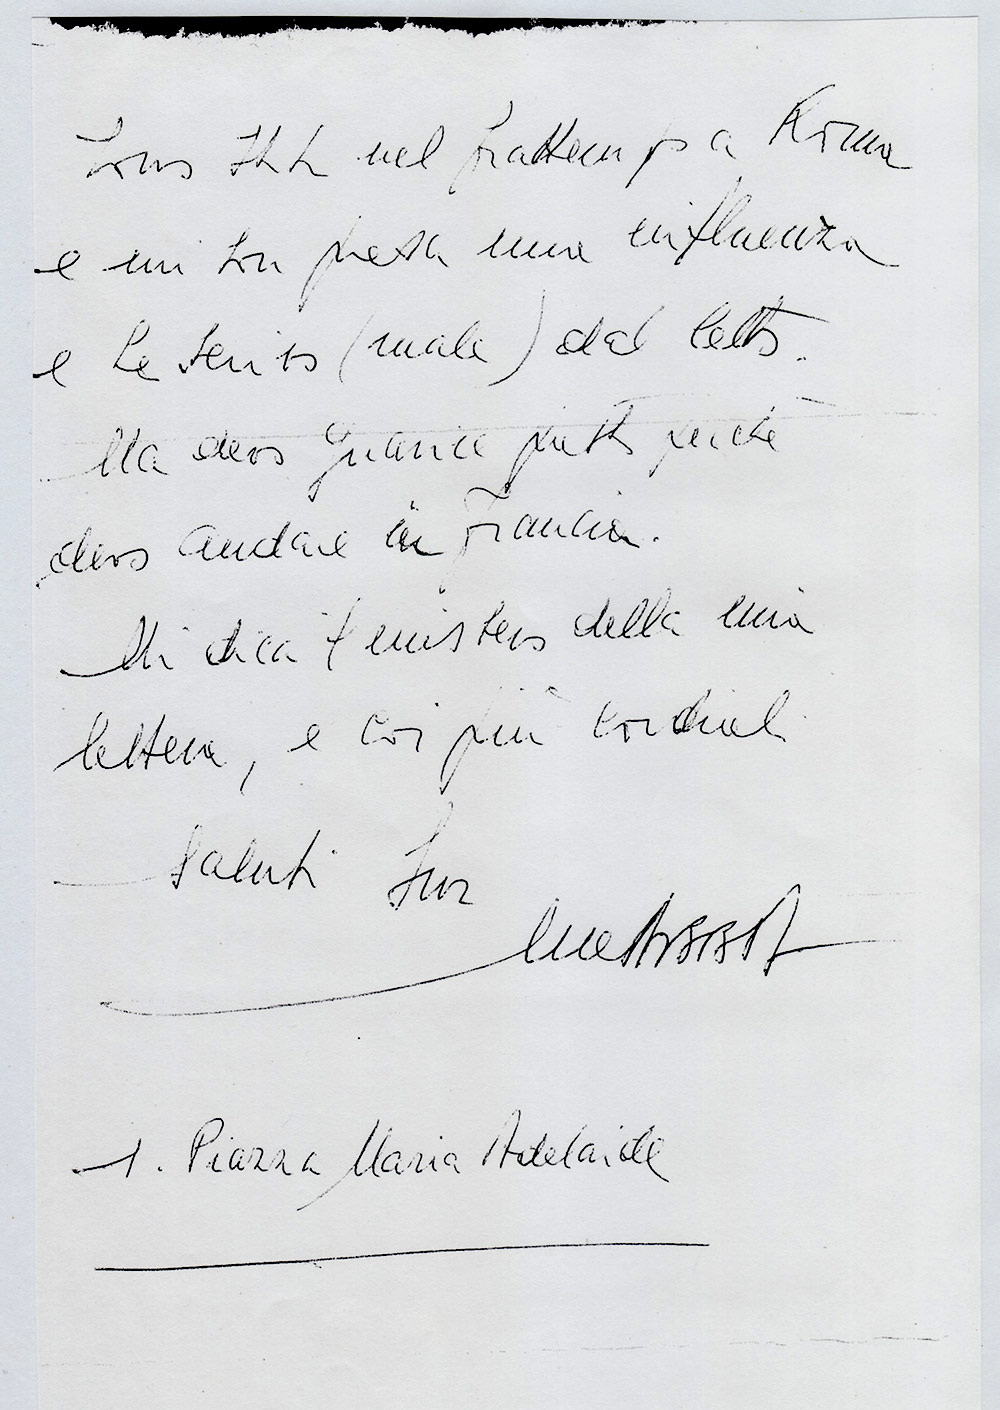 Sono stato nel frattempo a Roma
e mi son presa una influenza
e Le scrivo (male) dal letto.
Ma devo guarire presto perché
devo andare in Francia.
Mi dica il mistero della mia
lettera, e coi più cordiali
saluti Suo
1. Piazza Maria Adelaide